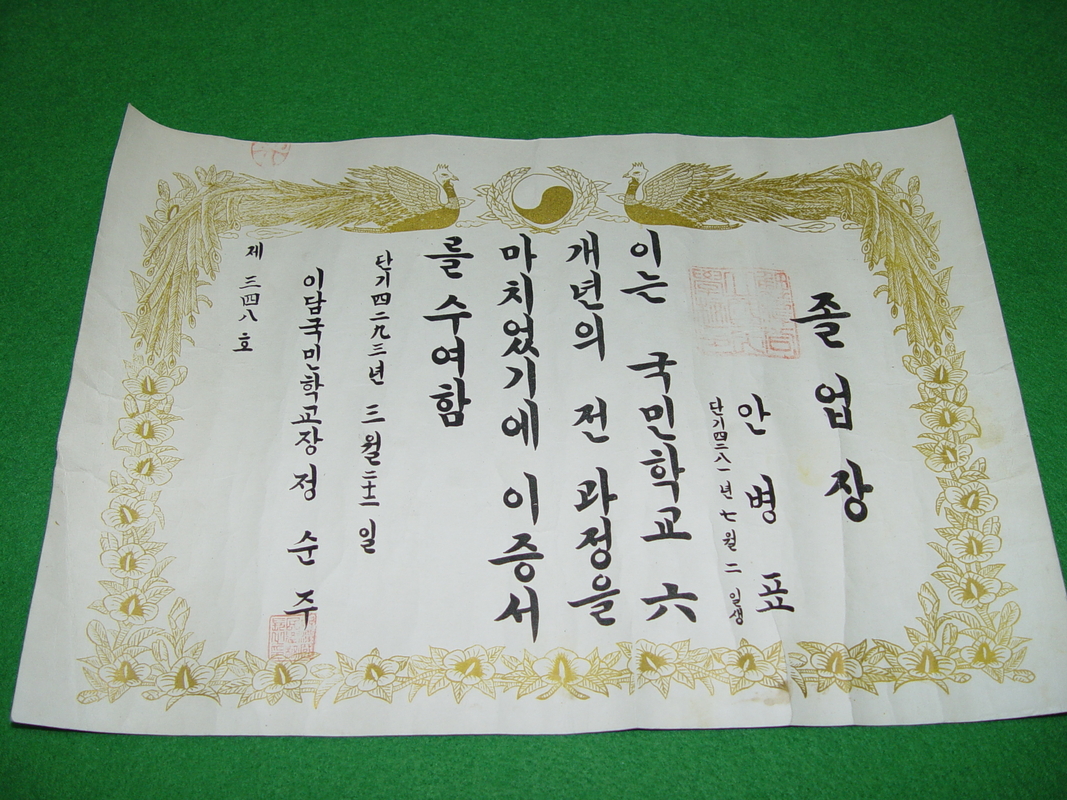 졸업장
안병표
단기四二八一년 七월 二일생
이는 국민학교 六
개년의 전 과정을
마치었기에 이 증서
를 수여함
단기四二九三년 三월二十二일
이담국민학교장 정순주
제 三四八 호